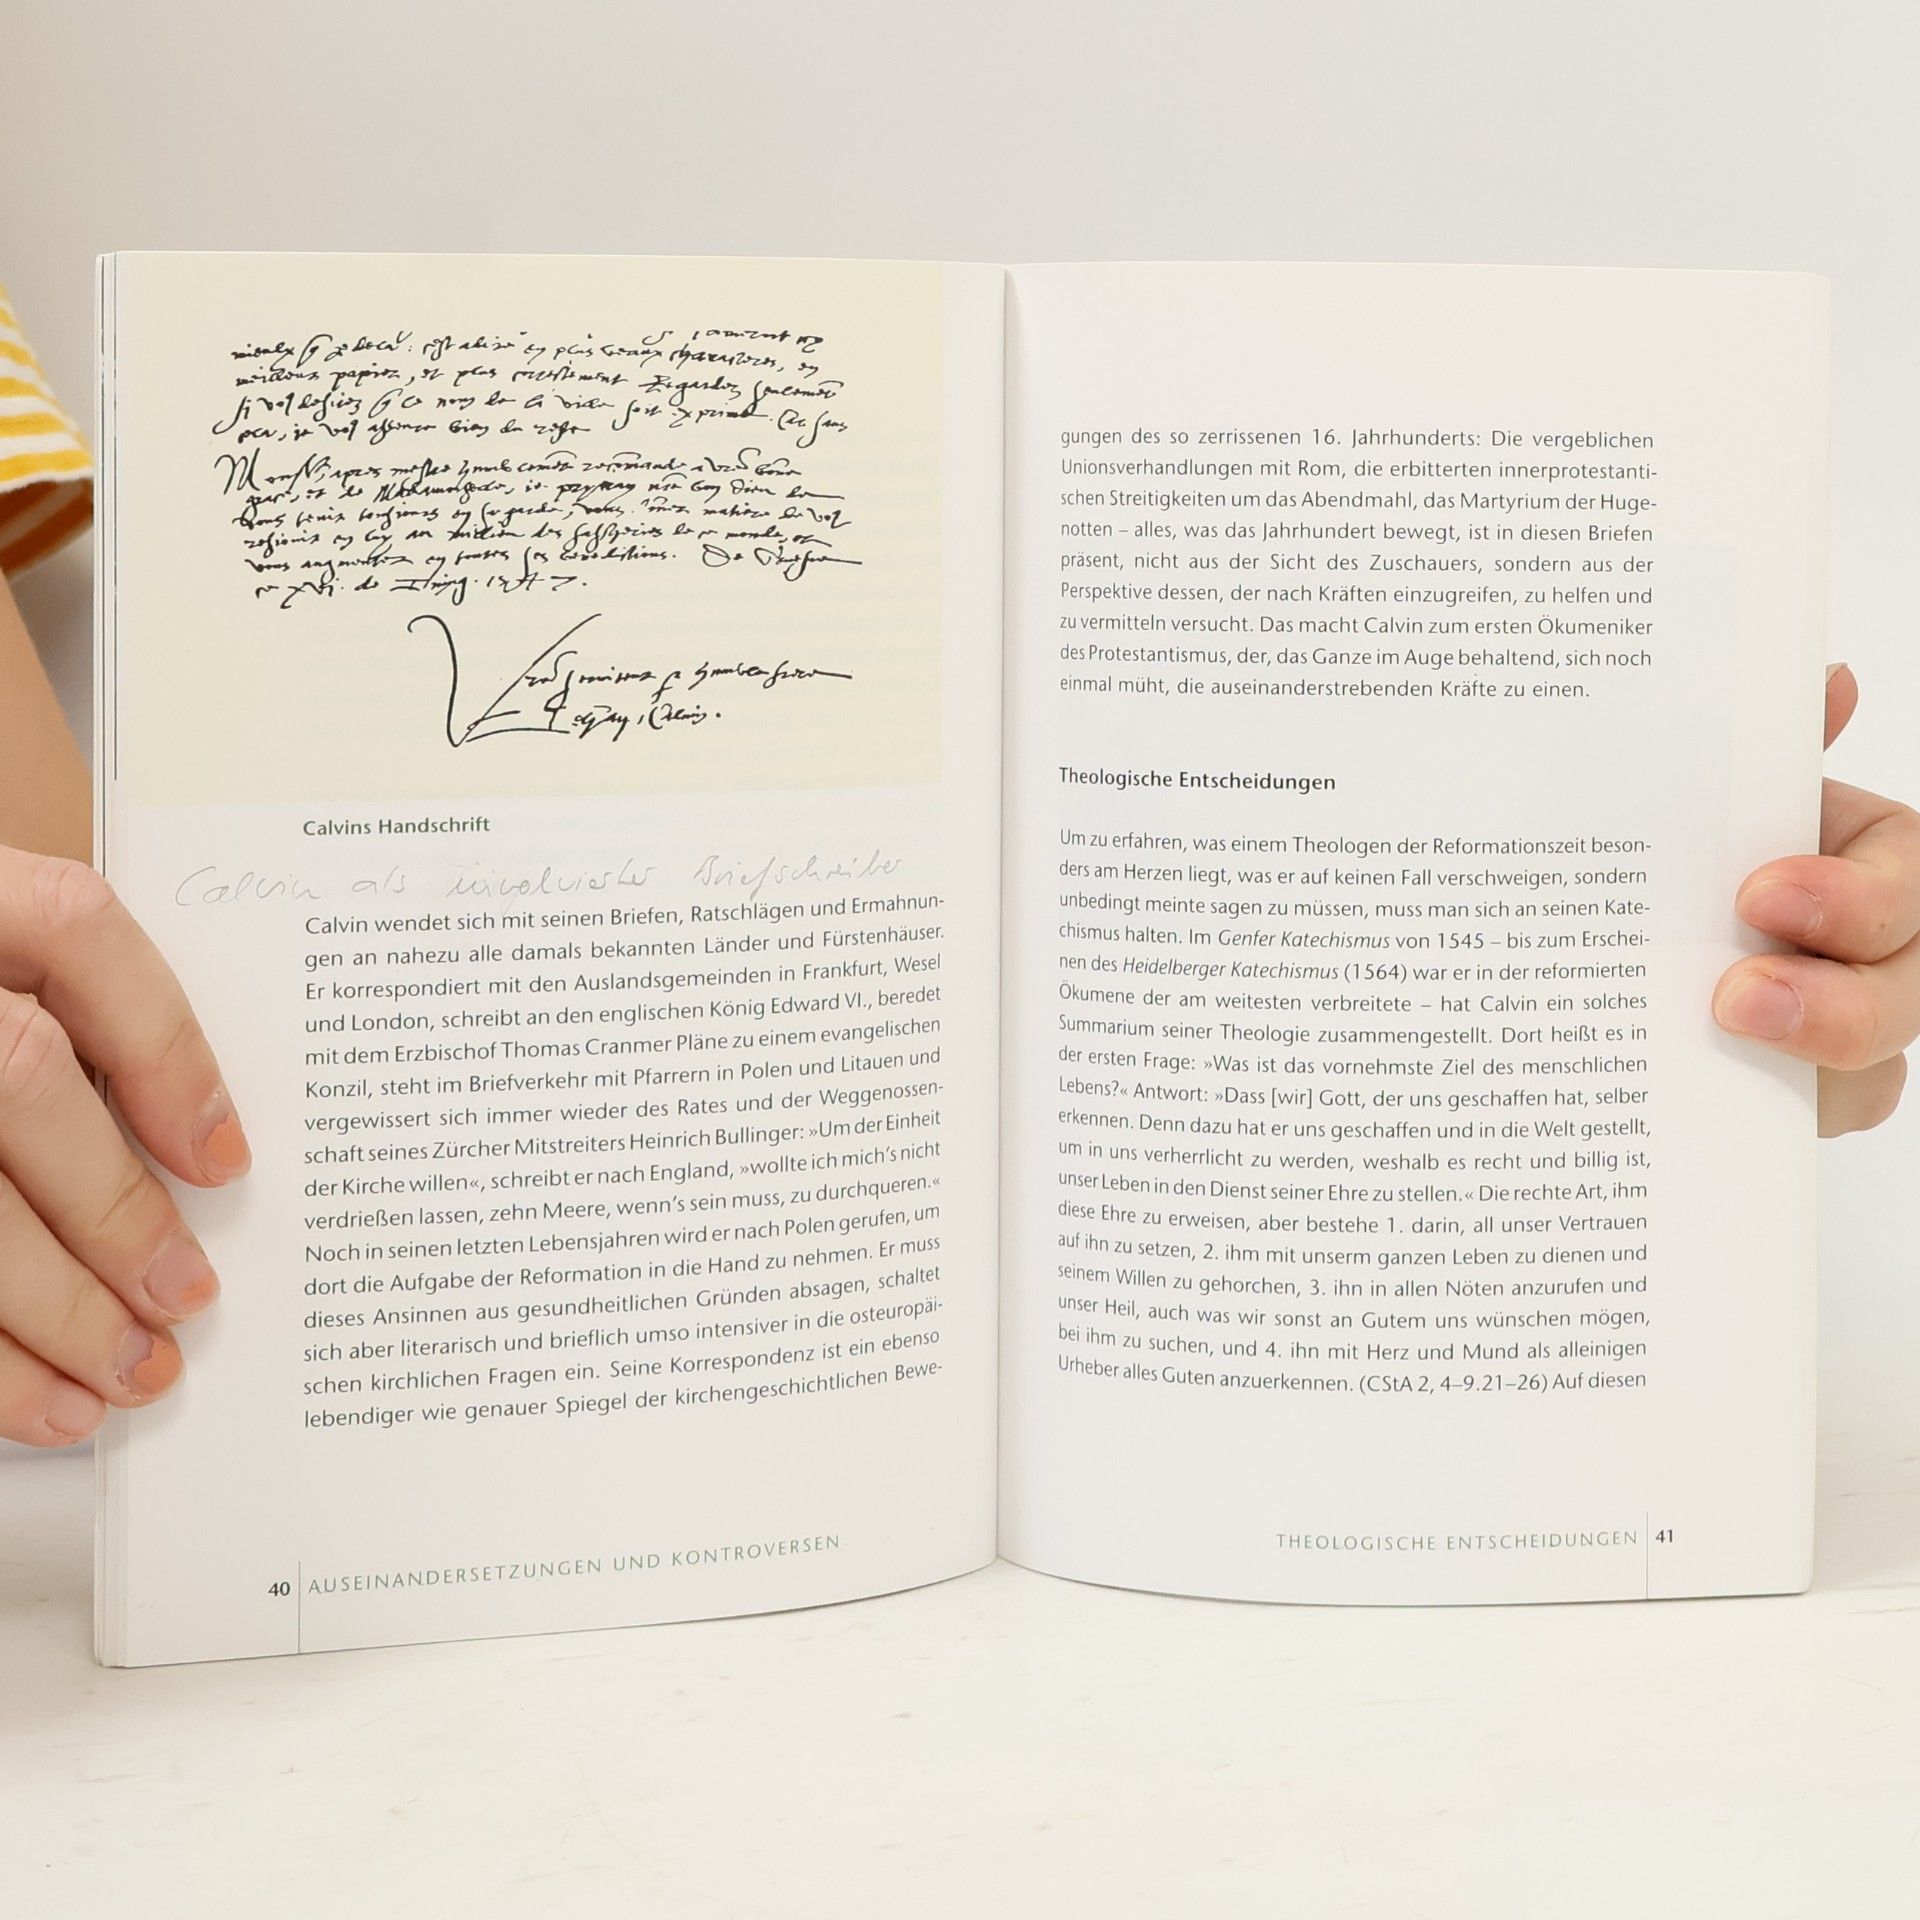 Calvins Handschrift
Calvin als involvierter Briefschreiber
Calvin wendet sich mit seinen Briefen, Ratschlägen und Ermahnun-
gen an nahezu alle damals bekannten Länder und Fürstenhäuser.
Er korrespondiert mit den Auslandsgemeinden in Frankfurt, Wesel
und London, schreibt an den englischen König Edward VI., beredet
mit dem Erzbischof Thomas Cranmer Pläne zu einem evangelischen
Konzil, steht im Briefverkehr mit Pfarrern in Polen und Litauen und
vergewissert sich immer wieder des Rates und der Weggenossen-
schaft seines Zürcher Mitstreiters Heinrich Bullinger: »Um der Einheit
der Kirche willen«, schreibt er nach England, »wollte ich mich's nicht
verdrießen lassen, zehn Meere, wenn's sein muss, zu durchqueren.«
Noch in seinen letzten Lebensjahren wird er nach Polen gerufen, um
dort die Aufgabe der Reformation in die Hand zu nehmen. Er muss
dieses Ansinnen aus gesundheitlichen Gründen absagen, schaltet
sich aber literarisch und brieflich umso intensiver in die osteuropäi-
schen kirchlichen Fragen ein. Seine Korrespondenz ist ein ebenso
lebendiger wie genauer Spiegel der kirchengeschichtlichen Bewe-
40 AUSEINANDERSETZUNGEN UND KONTROVERSEN
gungen des so zerrissenen 16. Jahrhunderts: Die vergeblichen
Unionsverhandlungen mit Rom, die erbitterten innerprotestanti-
schen Streitigkeiten um das Abendmahl, das Martyrium der Huge-
notten – alles, was das Jahrhundert bewegt, ist in diesen Briefen
präsent, nicht aus der Sicht des Zuschauers, sondern aus der
Perspektive dessen, der nach Kräften einzugreifen, zu helfen und
zu vermitteln versucht. Das macht Calvin zum ersten Ökumeniker
des Protestantismus, der, das Ganze im Auge behaltend, sich noch
einmal müht, die auseinanderstrebenden Kräfte zu einen.
Theologische Entscheidungen
Um zu erfahren, was einem Theologen der Reformationszeit beson-
ders am Herzen liegt, was er auf keinen Fall verschweigen, sondern
unbedingt meinte sagen zu müssen, muss man sich an seinen Kate-
chismus halten. Im Genfer Katechismus von 1545 – bis zum Erschei-
nen des Heidelberger Katechismus (1564) war er in der reformierten
Ökumene der am weitesten verbreitete – hat Calvin ein solches
Summarium seiner Theologie zusammengestellt. Dort heißt es in
der ersten Frage: »Was ist das vornehmste Ziel des menschlichen
Lebens?« Antwort: »Dass [wir] Gott, der uns geschaffen hat, selber
erkennen. Denn dazu hat er uns geschaffen und in die Welt gestellt,
um in uns verherrlicht zu werden, weshalb es recht und billig ist,
unser Leben in den Dienst seiner Ehre zu stellen.« Die rechte Art, ihm
diese Ehre zu erweisen, aber bestehe 1. darin, all unser Vertrauen
auf ihn zu setzen, 2. ihm mit unserm ganzen Leben zu dienen und
seinem Willen zu gehorchen, 3. ihn in allen Nöten anzurufen und
unser Heil, auch was wir sonst an Gutem uns wünschen mögen,
bei ihm zu suchen, und 4. ihn mit Herz und Mund als alleinigen
Urheber alles Guten anzuerkennen. (CStA 2, 4–9.21–26) Auf diesen
THEOLOGISCHE ENTSCHEIDUNGEN 41